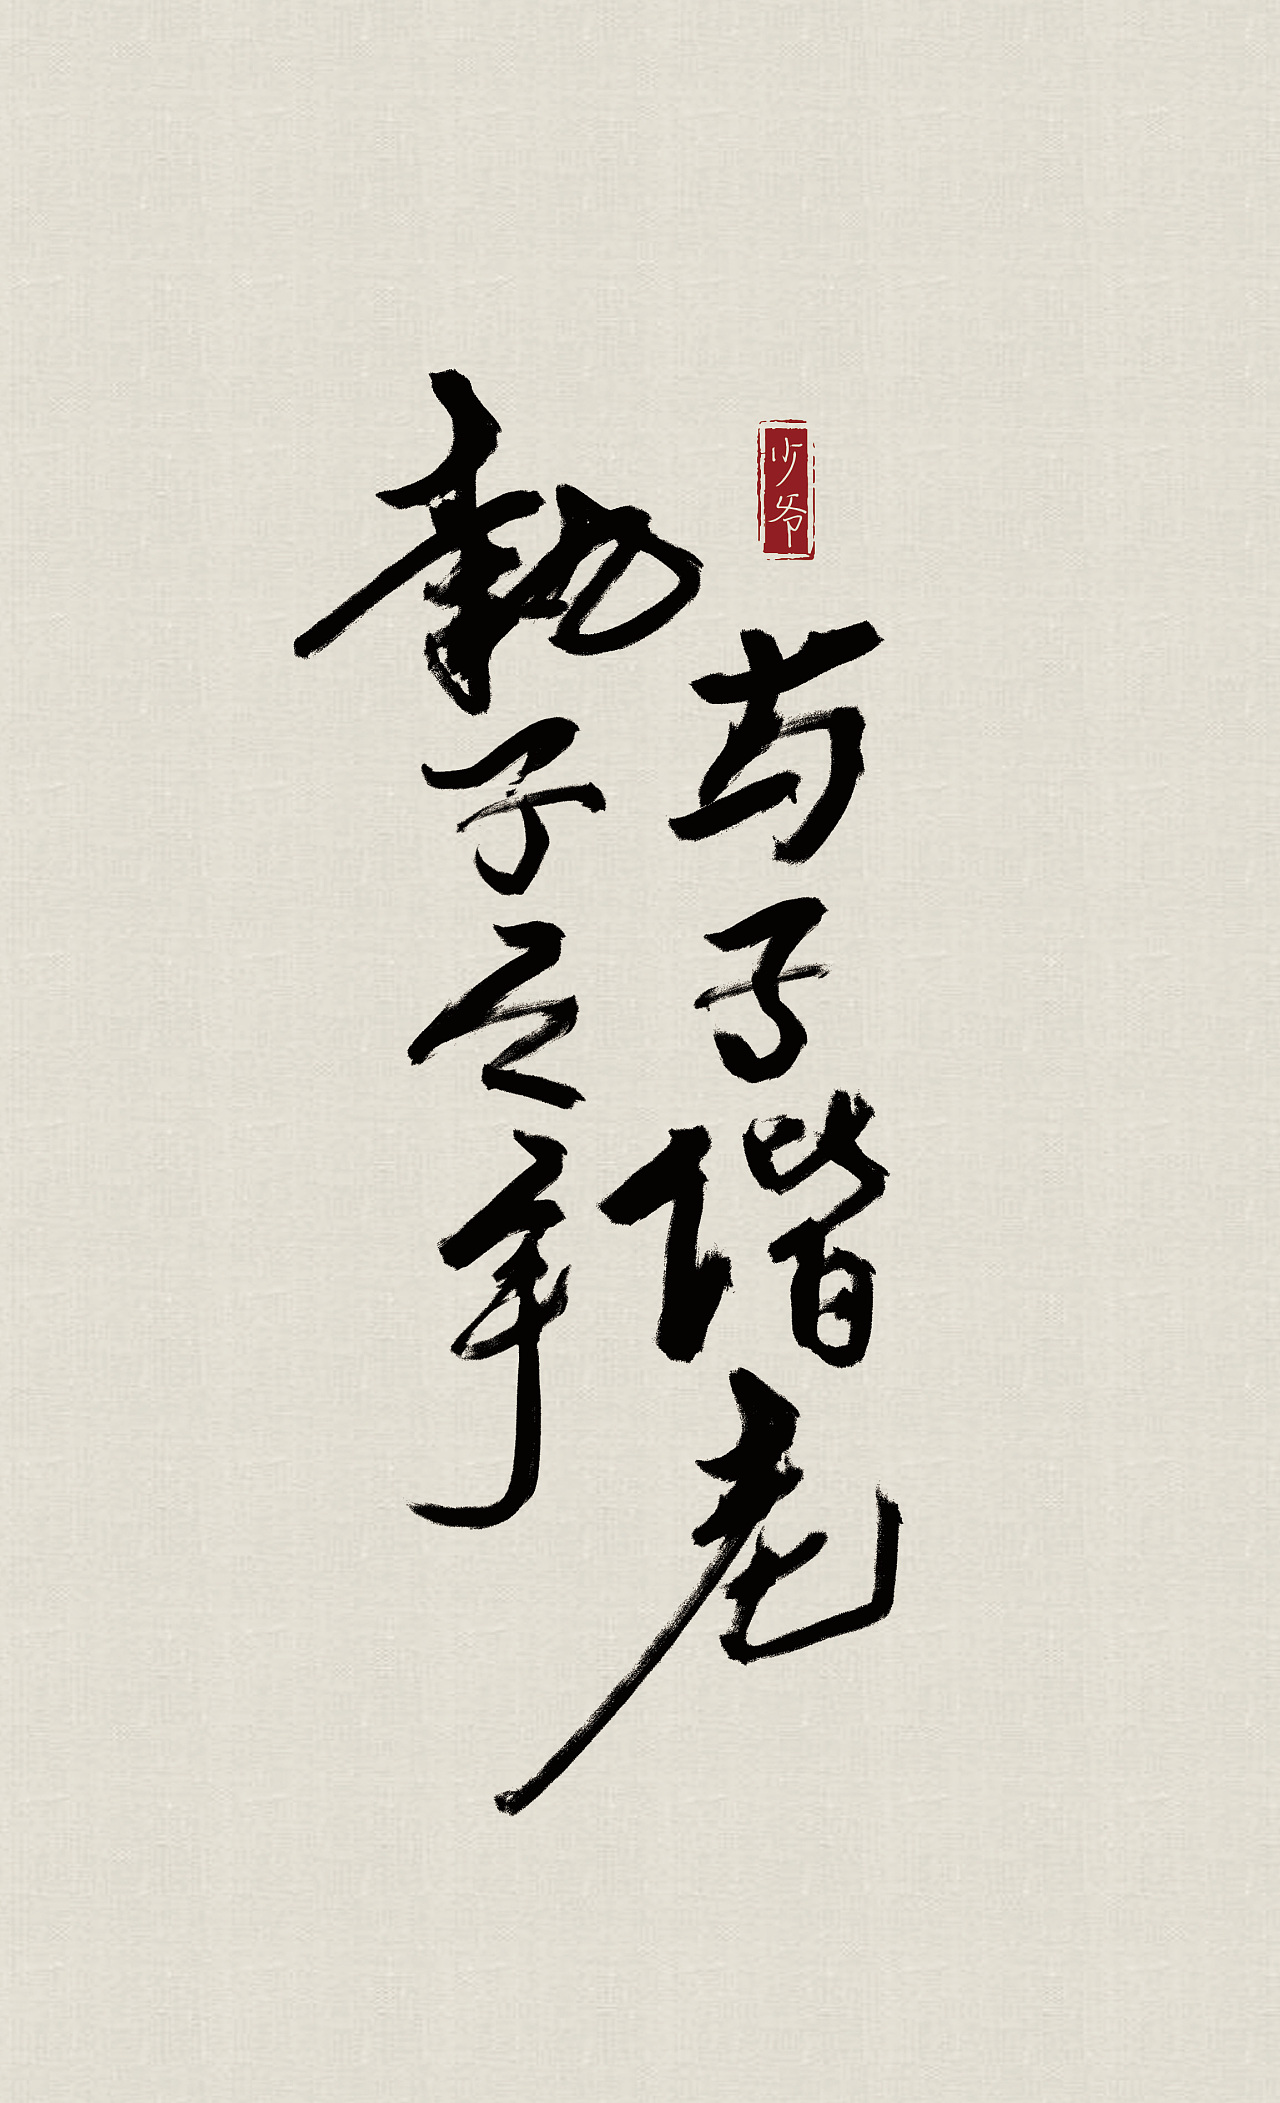 少爷
与子偕老
執子之手